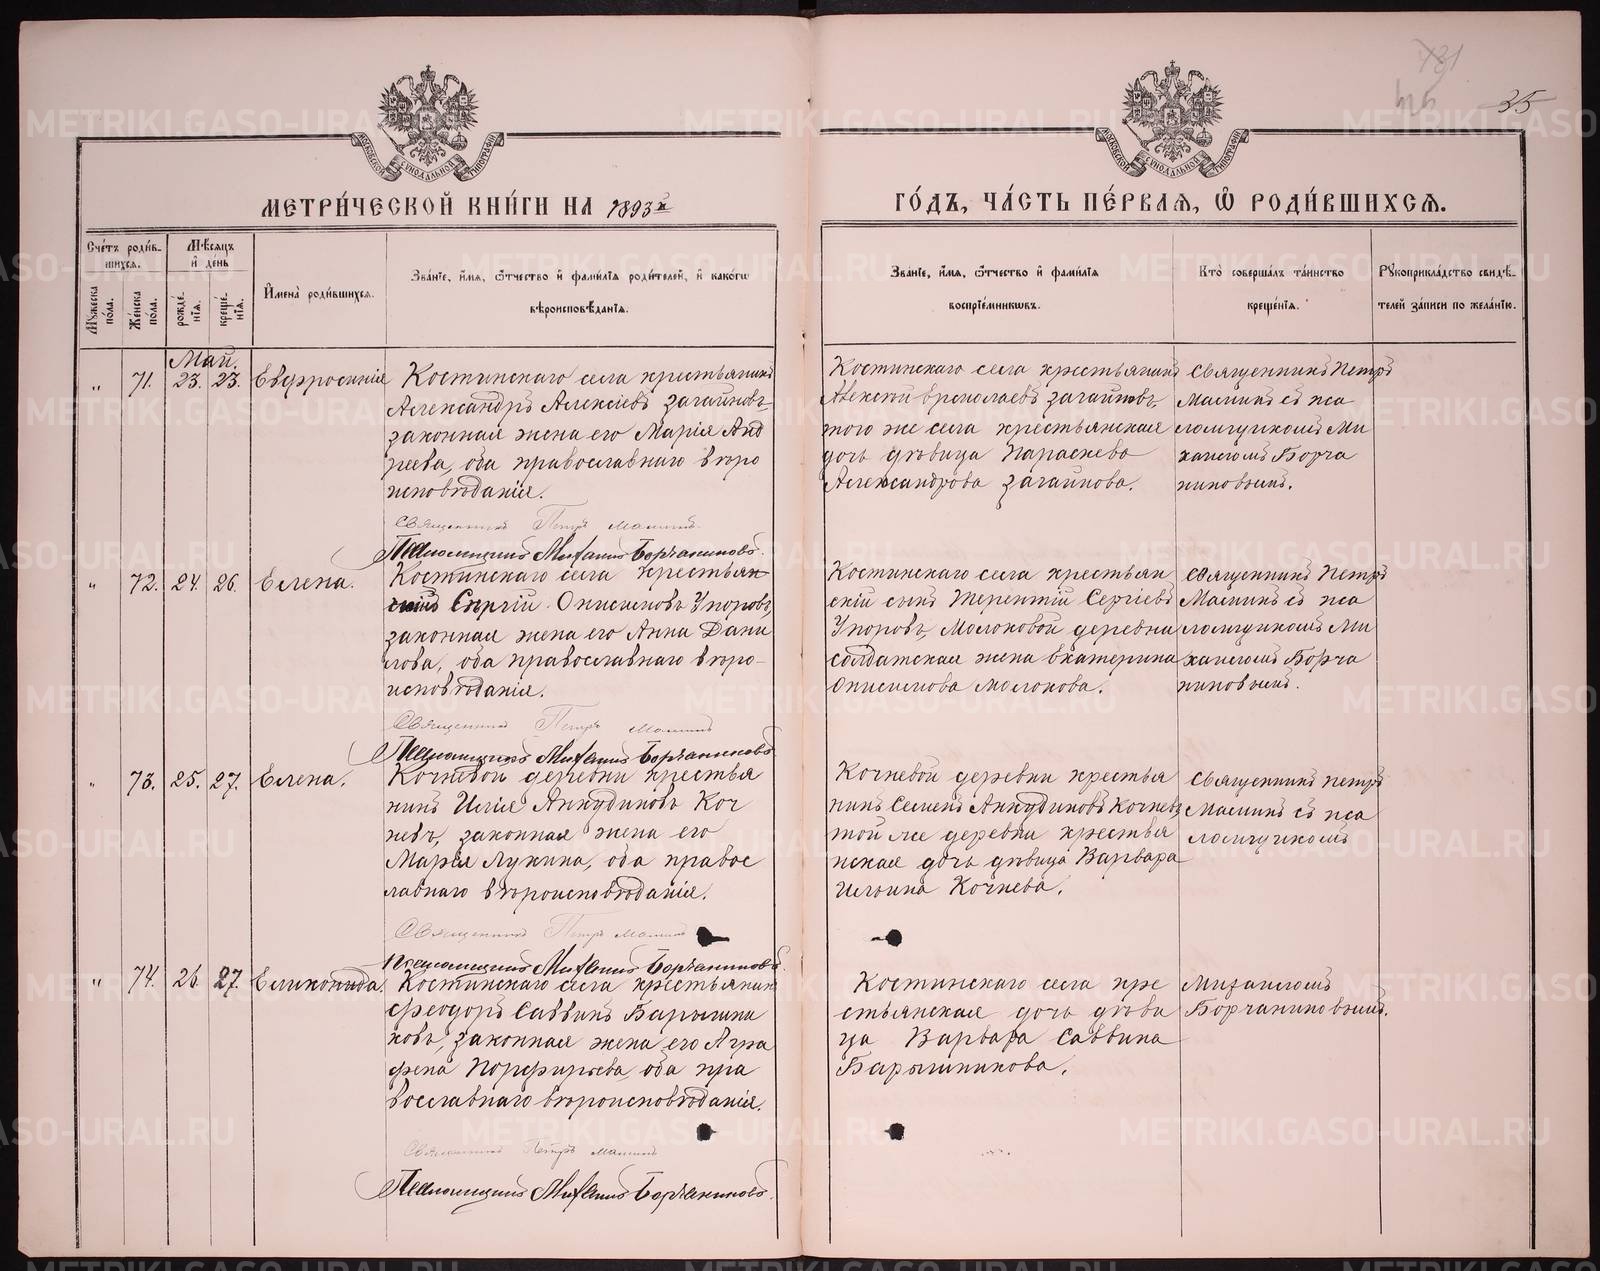 МЕТРИ́ЧЕСКОЙ КНИ́ГИ НА 1893й
ГО́ДЪ, ЧА́СТЬ ПЕ́РВАѦ, Ѽ РОДИ́ВШИХСѦ.
35
МОСКОВСКОЙ СѴНОДАЛЬНОЙ ТИПОГРАФІИ
МОСКОВСКОЙ СѴНОДАЛЬНОЙ ТИПОГРАФІИ
Сче́тъ роди́в-
шихсѧ.
Мꙋ́жеска по́ла.
Же́нска по́ла.
Мѣ́сѧцъ и҆ де́нь
рожде́-нїѧ.
креще́-нїѧ.
И҆мена̀ роди́вшихсѧ.
Зва́нїе, и҆́мѧ, ѻ҆́тчество и҆ фами́лїѧ роди́телей, и҆ како́гѡ
вѣроисповѣ́данїѧ.
Зва́нїе, и҆́мѧ, ѻ҆́тчество и҆ фами́лїѧ
воспрїе́мникѡвъ.
Кто̀ соверша́лъ та́инство
креще́нїѧ.
Рꙋкоприкла́дство свидѣ́-
телей за́писи по жела́нїю.
Май.
" 71. 23. 23. Евфросинія
Костинскаго села крестьянинъ
Александръ Алексіевъ Загайновъ,
законная жена его Марія Анд
реева, оба православнаго вѣро
исповѣданія.
Священникъ Петръ Малинъ.
Псаломщикъ Михаилъ Борчаниновъ.
Костинскаго села крестьянинъ
Алексій Ермолаевъ Загайновъ,
того же села крестьянская
дочь дѣвица Параскева
Александрова Загайнова.
Священникъ Петръ
Малинъ съ пса
ломщикомъ Ми
хаиломъ Борча
ниновымъ.
" 72. 24. 26. Елена.
Костинскаго села крестьян
Сергій Онисимовъ Упоровъ,
законная жена его Анна Дани
лова, оба православнаго вѣро-
исповѣданія.
Священникъ Петръ Малинъ
Псаломщикъ Михаилъ Борчаниновъ
Костинскаго села крестьян
скій сынъ Терентій Сергіевъ
Упоровъ, Молоковой деревни
солдатская жена Екатерина
Онисимова Молокова.
Священникъ Петръ
Малинъ съ пса
ломщикомъ Ми
хаиломъ Борча
ниновымъ.
" 73. 25. 27. Елена.
Кочневой деревни крестья
нинъ Илія Анкудиновъ Коч
невъ, законная жена его
Марія Лукина, оба правос
лавнаго вѣроисповѣданія.
Священникъ Петръ Малинъ
Псаломщикъ Михаилъ Борчаниновъ.
Кочневой деревни крестья
нинъ Семенъ Анкудиновъ Кочневъ
той же деревни крестья
нская дочь дѣвица Варвара
Ильина Кочнева.
Священникъ Петръ
Малинъ съ пса
ломщикомъ
" 74. 26. 27. Еликонида.
Костинскаго села крестьянинъ
Феодоръ Саввинъ Барышни
ковъ, законная жена его Агра
фена Порфирьева, оба пра
вославнаго вѣроисповѣданія.
Священникъ Петръ Малинъ
Псаломщикъ Михаилъ Борчаниновъ.
Костинскаго села кре
стьянская дочь дѣви
ца Варвара Саввина
Барышникова.
Михаиломъ
Борчаниновымъ.
METRIKI.GASO-URAL.RU